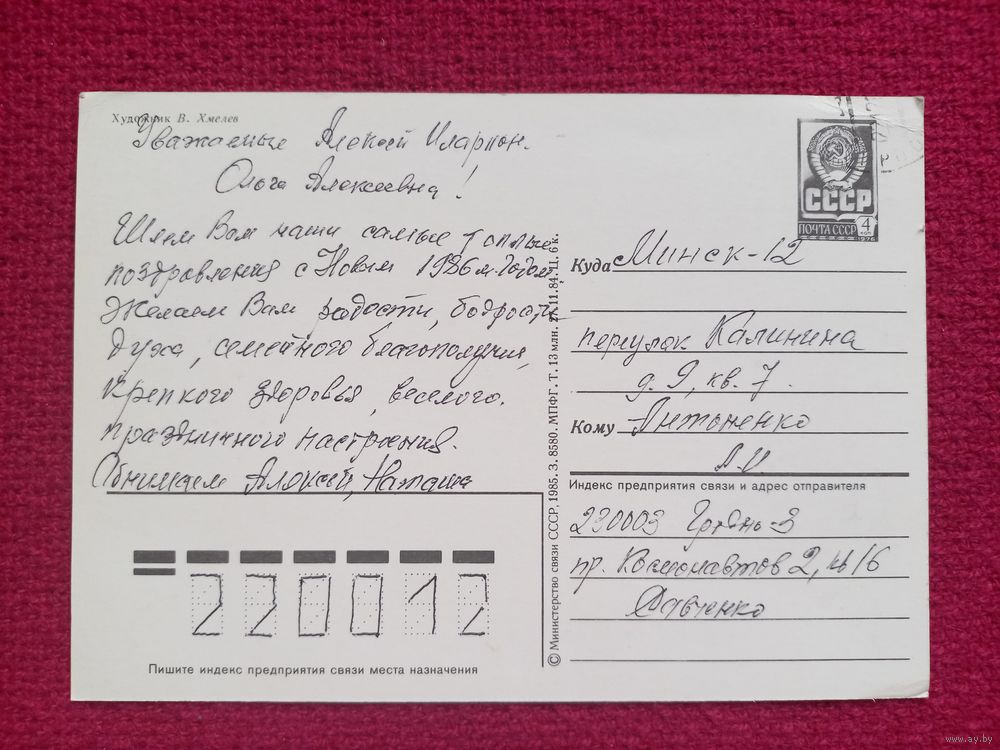 Художник В. Хмелев
Уважаемые Алексей Иларион.
Ольга Алексеевна!
Шлем Вам наши самые теплые
поздравления с Новым 1986 м годом
Желаем Вам радости, бодрости
духа, семейного благополучия,
крепкого здоровья, веселого.
праздничного настроения.
Обнимаем Алексей, Наташа
СССР
ПОЧТА СССР 4 коп
1976
Куда Минск-12
переулок Калинина
д. 9, кв. 7.
Кому Антоненко
А.И.
Индекс предприятия связи и адрес отправителя
230003 Гродно-3
пр. Космонавтов 2, кв 16
Савченко
© Министерство связи СССР, 1985. З. 8580. МПФГ. Т. 13 млн. 27.11.84. Ц. 6 к.
220012
Пишите индекс предприятия связи места назначения
www.ay.by